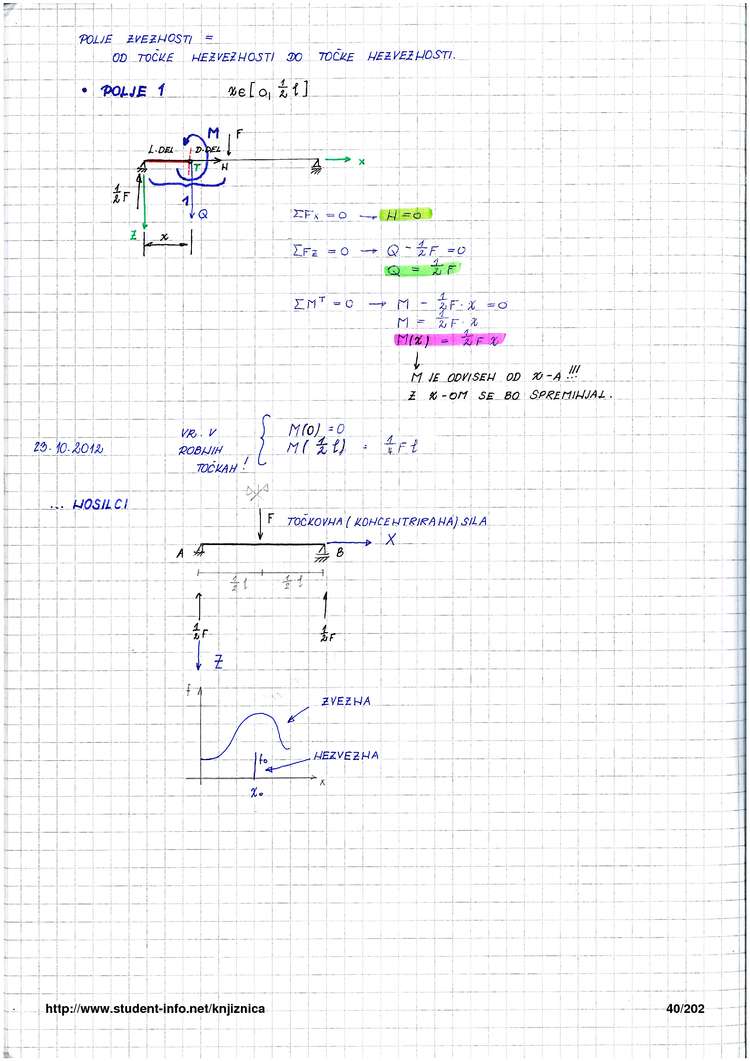 POLJE ZVEZNOSTI =
OD TOČKE NEZVEZNOSTI DO TOČKE NEZVEZNOSTI.
• POLJE 1 x∈[0, 1/2 l]
M F
L.DEL D.DEL
T N x
1/2 F
1 Q
Z x
ΣFx = 0 → N = 0
ΣFz = 0 → Q - 1/2 F = 0
Q = 1/2 F
ΣM^T = 0 → M - 1/2 F · x = 0
M = 1/2 F · x
M(x) = 1/2 F x
↓
M JE ODVISEN OD X-A !!!
Z X-OM SE BO SPREMINJAL.
23.10.2012
VR. V
ROBNIH
TOČKAH!
M(0) = 0
M(1/2 l) = 1/4 F l
... NOSILCI
F TOČKOVNA (KONCENTRIRANA) SILA
A B X
1/2 l 1/2 l
1/2 F 1/2 F
Z
f
ZVEZNA
f₀ NEZVEZNA
x
x₀
http://www.student-info.net/knjiznica 40/202